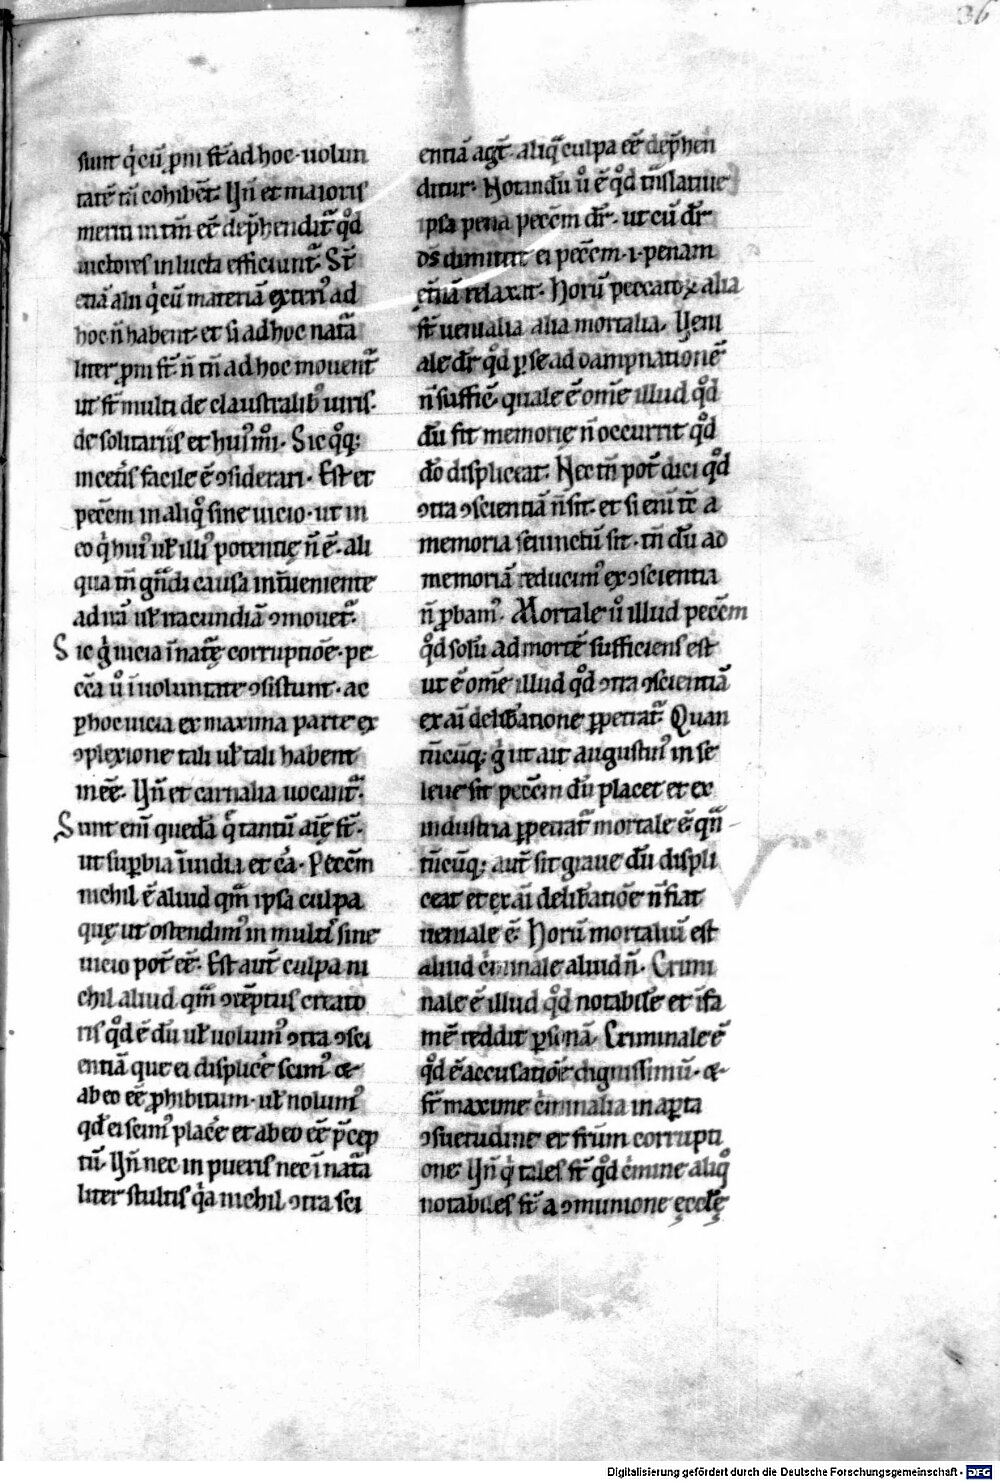 36
sunt q̇ cū p̱ni st̄ ad hoc · uolun
tatē tn̄ cohibēt. Un̄ et maioris
meriti in tm̄ eē dep̄hendit᷑ qd̊
uictores in lucta efficiunt᷑. St̄
etiā alii q̇ cū materiā exteriꝰ ad
hoc n̄ habent · et si ad hoc nata
liter p̱ni st̄ · n̄ tn̄ ad hoc mouent᷑
ut st̄ multi de claustralibꝰ uiris.
de solitariis et huiꝰmōi. Sic qͦꝫ
in cet̄is facile ē ꝯsiderari. Est et
pecc̄m in aliqͦ sine uicio · ut in
eo q̇ huiꝰ uł illiꝰ potentię n̄ ē. ali
qua tn̄ gͣndi causa int̄ueniente
ad irā uł iracundiā ꝯmouet᷑.
Sic g̊ uicia īnatę corruptiōē · pe
cc̄a u̇ ī uoluntate ꝯsistunt · ac
ꝑ hoc uicia ex maxima parte ex
ꝯplexione tali uł tali habent
inēē. Un̄ et carnalia uocant᷑.
Sunt enī quedā q̄ tantū aīę st̄.
ut suꝑbia īuidia et c̄a. Pecc̄m
nichil ē aliud qm̄ ipsa culpa
quę ut ostendimꝰ in multis sine
uicio pot̄ eē. Est aut̄ culpa ni
chil aliud qm̄ ꝯtēptus creato
ris qd̊ ē dū uł uolumꝰ ꝯtra ꝯsci
entiā que ei displicē scimꝰ &
ab eo eē ꝓhibitum · uł nolumꝰ
qd̊ ei scimꝰ placē et ab eo eē p̄cep
tū. Un̄ nec in pueris nec ī nata
liter stultis q̇a nichil ꝯtra sci
entiā agt̄ · aliq̄ culpa eē dep̄hen
ditur. Notandū u̇ ē qd̊ tn̄slatiue
ipsa pena pecc̄m dr̄ · ut cū dr̄
ds̄ dimittit ei pecc̄m · i · penam
et̄nā relaxat. Horū peccatoꝝ alia
st̄ uenialia alia mortalia. Ueni
ale dr̄ qd̊ ꝑ se ad dampnationē
n̄ sufficē · quale ē om̄e illud qd̊
dū fit memorię n̄ occurrit qd̊
dō displiceat. Nec tn̄ pot̄ dici qd̊
ꝯtra ꝯscientiā n̄ sit · et si eni tc̄ a
memoria seiunctū sit · tn̄ dū ad
memoriā reducimꝰ ex ꝯscientia
n̄ ꝓbamꝰ. Mortale u̇ illud pecc̄m
qd̊ solū ad mortē sufficiens est
ut ē om̄e illud qd̊ ꝯtra ꝯscientiā
ex aī delib̄atione ꝑpetrat᷑. Quan
tūcūqꝫ g̊ ut ait augustinꝰ in se
leue sit pecc̄m dū placet et ex
industria ꝑpetrat᷑ mortale ē · qn̄
tūcūqꝫ aut̄ sit graue dū displi
ceat et ex aī delib̄atiōe n̄ fiat
ueniale ē. Horū mortaliū est
aliud c̄minale aliud n̄. Crimi
nale ē illud qd̊ notabilē et īfa
mē reddit ꝑsonā. Criminale ē
qd̊ ē accusatiōe dignissimū · &
st̄ maxime c̄minalia in aꝑta
ꝯsuetudine et frūm corrupti
one. Un̄ q̇ tales st̄ qd̊ c̄mine aliqͦ
notabiles st̄ a ꝯmunione ęcclę
Digitalisierung gefördert durch die Deutsche Forschungsgemeinschaft - DFG